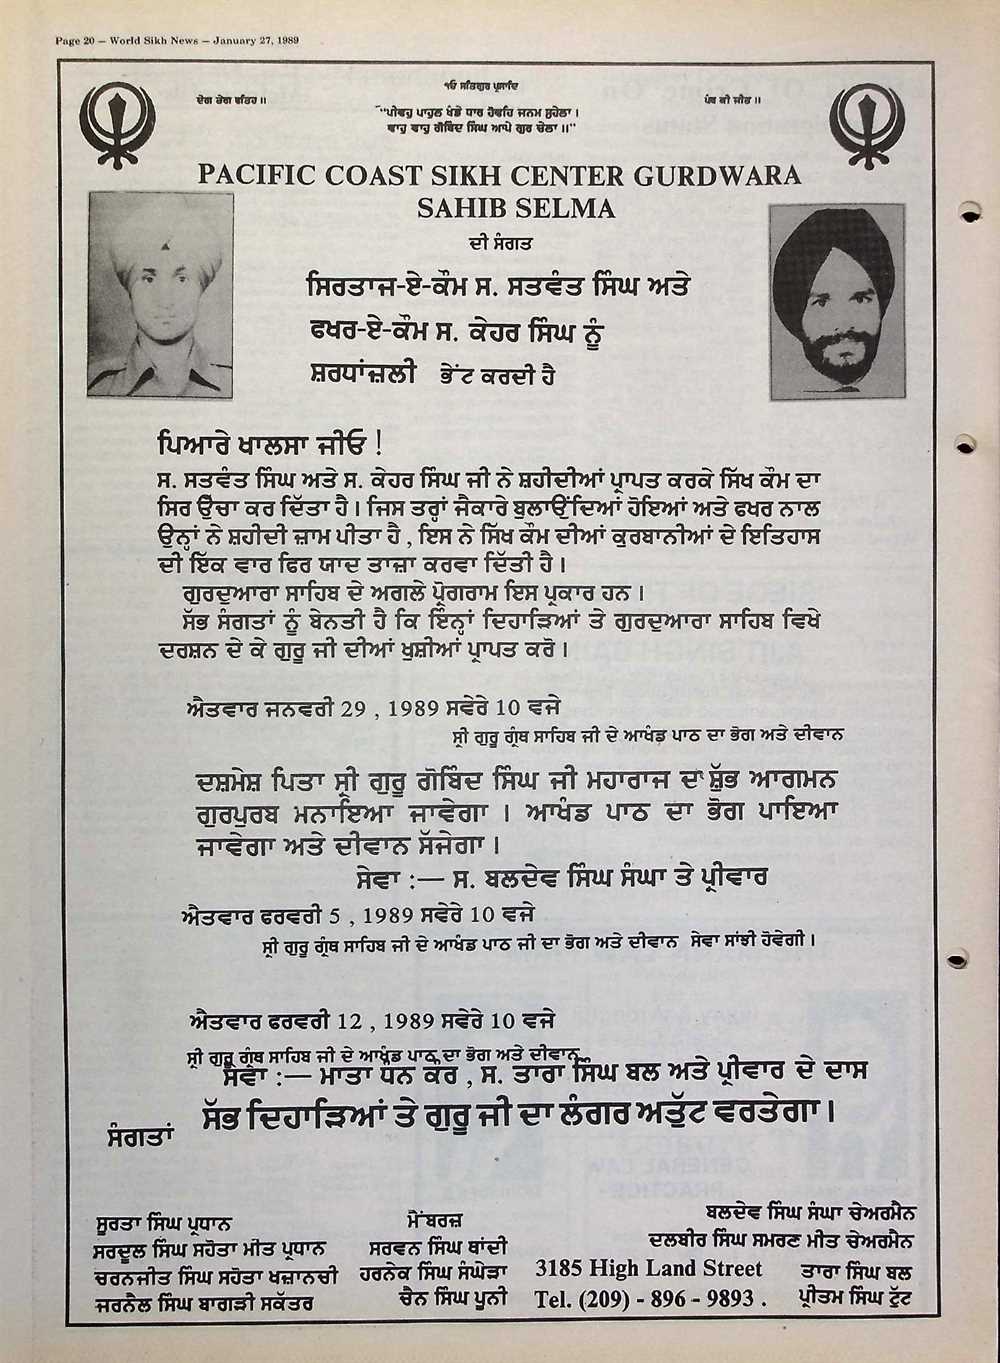 Page 20 — World Sikh News — January 27, 1989
੧ਓ ਸਤਿਗੁਰ ਪ੍ਰਸਾਦਿ
ਦੇਗ ਤੇਗ ਫਤਿਹ ॥
ਪੰਥ ਕੀ ਜੀਤ ॥
"ਪੀਵਹੁ ਪਾਹੁਲ ਖੰਡੇ ਧਾਰ ਹੋਵਹਿ ਜਨਮ ਸੁਹੇਲਾ ।
ਵਾਹੁ ਵਾਹੁ ਗੋਬਿੰਦ ਸਿੰਘ ਆਪੇ ਗੁਰ ਚੇਲਾ ॥"
PACIFIC COAST SIKH CENTER GURDWARA
SAHIB SELMA
ਦੀ ਸੰਗਤ
ਸਿਰਤਾਜ-ਏ-ਕੌਮ ਸ. ਸਤਵੰਤ ਸਿੰਘ ਅਤੇ
ਫਖਰ-ਏ-ਕੌਮ ਸ. ਕੇਹਰ ਸਿੰਘ ਨੂੰ
ਸ਼ਰਧਾਂਜ਼ਲੀ ਭੇਂਟ ਕਰਦੀ ਹੈ
ਪਿਆਰੇ ਖਾਲਸਾ ਜੀਓ !
ਸ. ਸਤਵੰਤ ਸਿੰਘ ਅਤੇ ਸ. ਕੇਹਰ ਸਿੰਘ ਜੀ ਨੇ ਸ਼ਹੀਦੀਆਂ ਪ੍ਰਾਪਤ ਕਰਕੇ ਸਿੱਖ ਕੌਮ ਦਾ
ਸਿਰ ਉੱਚਾ ਕਰ ਦਿੱਤਾ ਹੈ । ਜਿਸ ਤਰ੍ਹਾਂ ਜੈਕਾਰੇ ਬੁਲਾਉਂਦਿਆਂ ਹੋਇਆਂ ਅਤੇ ਫਖਰ ਨਾਲ
ਉਨ੍ਹਾਂ ਨੇ ਸ਼ਹੀਦੀ ਜ਼ਾਮ ਪੀਤਾ ਹੈ , ਇਸ ਨੇ ਸਿੱਖ ਕੌਮ ਦੀਆਂ ਕੁਰਬਾਨੀਆਂ ਦੇ ਇਤਿਹਾਸ
ਦੀ ਇੱਕ ਵਾਰ ਫਿਰ ਯਾਦ ਤਾਜ਼ਾ ਕਰਵਾ ਦਿੱਤੀ ਹੈ ।
ਗੁਰਦੁਆਰਾ ਸਾਹਿਬ ਦੇ ਅਗਲੇ ਪ੍ਰੋਗਰਾਮ ਇਸ ਪ੍ਰਕਾਰ ਹਨ ।
ਸੱਭ ਸੰਗਤਾਂ ਨੂੰ ਬੇਨਤੀ ਹੈ ਕਿ ਇੰਨ੍ਹਾਂ ਦਿਹਾੜਿਆਂ ਤੇ ਗੁਰਦੁਆਰਾ ਸਾਹਿਬ ਵਿਖੇ
ਦਰਸ਼ਨ ਦੇ ਕੇ ਗੁਰੂ ਜੀ ਦੀਆਂ ਖੁਸ਼ੀਆਂ ਪ੍ਰਾਪਤ ਕਰੋ ।
ਐਤਵਾਰ ਜਨਵਰੀ 29 , 1989 ਸਵੇਰੇ 10 ਵਜੇ
ਸ੍ਰੀ ਗੁਰੂ ਗ੍ਰੰਥ ਸਾਹਿਬ ਜੀ ਦੇ ਆਖੰਡ ਪਾਠ ਦਾ ਭੋਗ ਅਤੇ ਦੀਵਾਨ
ਦਸ਼ਮੇਸ਼ ਪਿਤਾ ਸ੍ਰੀ ਗੁਰੂ ਗੋਬਿੰਦ ਸਿੰਘ ਜੀ ਮਹਾਰਾਜ ਦਾ ਸ਼ੁੱਭ ਆਗਮਨ
ਗੁਰਪੁਰਬ ਮਨਾਇਆ ਜਾਵੇਗਾ । ਆਖੰਡ ਪਾਠ ਦਾ ਭੋਗ ਪਾਇਆ
ਜਾਵੇਗਾ ਅਤੇ ਦੀਵਾਨ ਸੱਜੇਗਾ ।
ਸੇਵਾ :— ਸ. ਬਲਦੇਵ ਸਿੰਘ ਸੰਘਾ ਤੇ ਪ੍ਰੀਵਾਰ
ਐਤਵਾਰ ਫਰਵਰੀ 5 , 1989 ਸਵੇਰੇ 10 ਵਜੇ
ਸ੍ਰੀ ਗੁਰੂ ਗ੍ਰੰਥ ਸਾਹਿਬ ਜੀ ਦੇ ਆਖੰਡ ਪਾਠ ਜੀ ਦਾ ਭੋਗ ਅਤੇ ਦੀਵਾਨ ਸੇਵਾ ਸਾਂਝੀ ਹੋਵੇਗੀ ।
ਐਤਵਾਰ ਫਰਵਰੀ 12 , 1989 ਸਵੇਰੇ 10 ਵਜੇ
ਸ੍ਰੀ ਗੁਰੂ ਗ੍ਰੰਥ ਸਾਹਿਬ ਜੀ ਦੇ ਆਖੰਡ ਪਾਠ ਦਾ ਭੋਗ ਅਤੇ ਦੀਵਾਨ
ਸੇਵਾ :— ਮਾਤਾ ਧਨ ਕੌਰ , ਸ. ਤਾਰਾ ਸਿੰਘ ਬਲ ਅਤੇ ਪ੍ਰੀਵਾਰ ਦੇ ਦਾਸ
ਸੱਭ ਦਿਹਾੜਿਆਂ ਤੇ ਗੁਰੂ ਜੀ ਦਾ ਲੰਗਰ ਅਤੁੱਟ ਵਰਤੇਗਾ ।
ਸੰਗਤਾਂ
ਸੂਰਤਾ ਸਿੰਘ ਪ੍ਰਧਾਨ
ਸਰਦੂਲ ਸਿੰਘ ਸਹੋਤਾ ਮੀਤ ਪ੍ਰਧਾਨ
ਚਰਨਜੀਤ ਸਿੰਘ ਸਹੋਤਾ ਖਜ਼ਾਨਚੀ
ਜਰਨੈਲ ਸਿੰਘ ਬਾਗੜੀ ਸਕੱਤਰ
ਮੈਂਬਰਜ਼
ਸਰਵਨ ਸਿੰਘ ਥਾਂਦੀ
ਹਰਨੇਕ ਸਿੰਘ ਸੰਘੇੜਾ
ਚੈਨ ਸਿੰਘ ਪੂਨੀ
ਬਲਦੇਵ ਸਿੰਘ ਸੰਘਾ ਚੇਅਰਮੈਨ
ਦਲਬੀਰ ਸਿੰਘ ਸਮਰਣ ਮੀਤ ਚੇਅਰਮੈਨ
3185 High Land Street
Tel. (209) - 896 - 9893 .
ਤਾਰਾ ਸਿੰਘ ਬਲ
ਪ੍ਰੀਤਮ ਸਿੰਘ ਟੁੱਟ